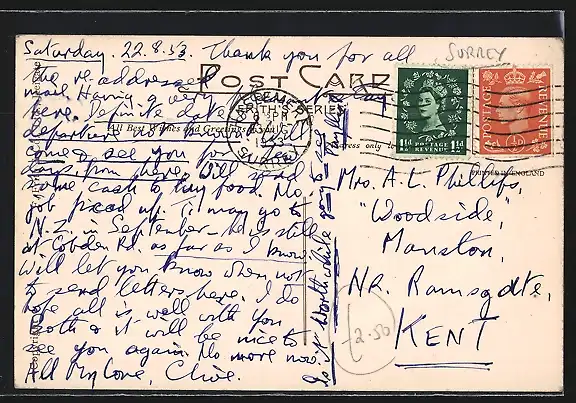 Saturday. 22.8.53. Thank you for all
the re-addressed
mail. Having a very
here. Definite date
departure
come & see you for a few
days from here. Will send
some cash to buy food. No
job fixed up. T. may go to
N.Z. in September - he is still
at Cobden Rd. as far as I know.
Will let you know when not
to send letters here. I do
hope all is well with you
both & it will be nice to
see you again. No more now.
All My love, Clive.
SURREY
POST CARD
THIS SERIES
All Best Wishes and Greetings
POSTAGE REVENUE
1½D POSTAGE REVENUE 1½D
POSTAGE
REVENUE
½D
PRINTED IN ENGLAND
Mrs. A. L. Phillips,
"Woodside",
Manston,
NR. Ramsgate,
KENT
2.50
Is it worthwhile going to see
Copyright